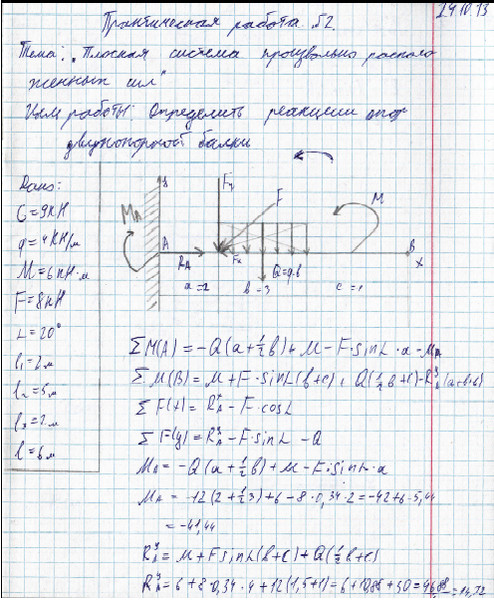 24.10.13
Практическая работа №2.
Тема: "Плоская система произвольно располо
женных сил"
Цель работы: Определить реакции опор
двухопорной балки
Дано:
G=9кН
q=4кН/м
M=6кН·м
F=8кН
L=20°
l₁=2м
l₂=3м
l=6м
Fy
F
M
MA
A
B
x
RA
Fx
Q=q·b
a=2
b=3
c=1
ΣM(A)=-Q(a+½b)+M-F·sinL·a-MA
ΣM(B)=M+F·sinL(b+c)+Q(½b+c)-Rᴬʸ(a+b+c)
ΣF(x)=Rᴬˣ-F·cosL
ΣF(y)=Rᴬʸ-F·sinL-Q
MA=-Q(a+½b)+M-F·sinL·a
MA=-12(2+½3)+6-8·0,34·2=-42+6-5,44
=-41,44
Rᴬʸ=M+FsinL(b+c)+Q(½b+c)
Rᴬʸ=6+8·0,34·4+12(1,5+1)=6+10,88+30=46,88